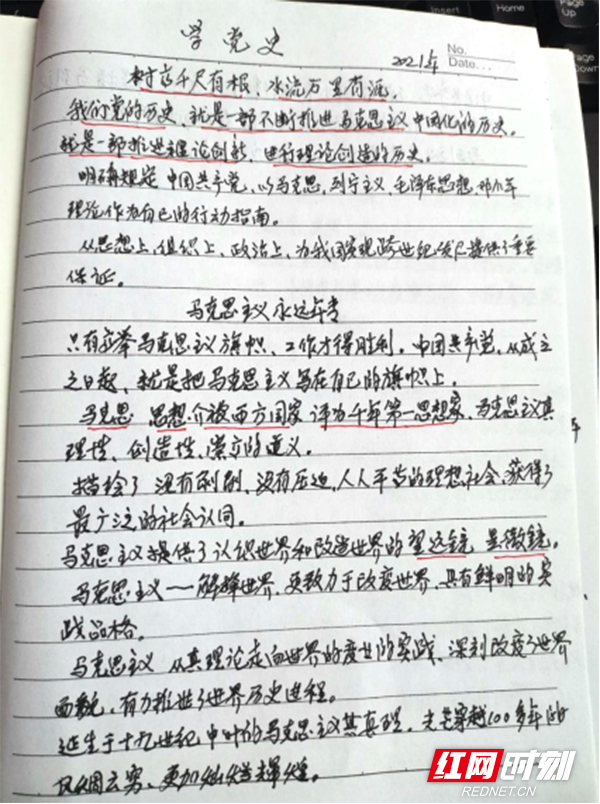 学党史
2021年
No.
Date...
树高千尺有根，水流万里有源。
我们党的历史，就是一部不断推进马克思主义中国化的历史，
就是一部推进理论创新，进行理论创造的历史。
明确规定 中国共产党，以马克思，列宁主义，毛泽东思想，邓小平
理论作为自己的行动指南。
从思想上，组织上，政治上，为我国实现跨世纪发展提供了重要
保证。
马克思主义永远年青
只有高举马克思主义旗帜，工作才得胜利，中国共产党，从成立
之日起，就是把马克思主义写在自己的旗帜上。
马克思 思想介被西方国家 评为千年第一思想家，马克思主义真
理性，创造性，崇立的道义。
描绘了 没有剥削，没有压迫，人人平等的理想社会，获得了
最广泛的社会认同。
马克思主义提供了认识世界和改造世界的望远镜 显微镜。
马克思主义——解释世界，更致力于改变世界，具有鲜明的实
践品格。
马克思主义 从真理论走向世界的度世的实践，深刻改变了世界
面貌，有力推进了世界历史进程。
诞生于十九世纪中叶的马克思主义其真理，光芒穿越100多年的
风烟云雾，更加灿烂辉煌。
Page Up
PgDn
Page
Ctrl
红网时刻
REDNET.CN